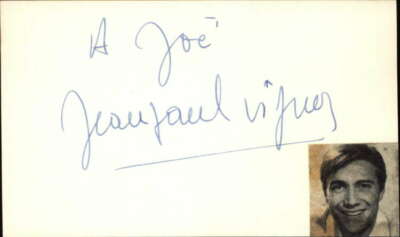 A Joë
Jean Paul Vignon